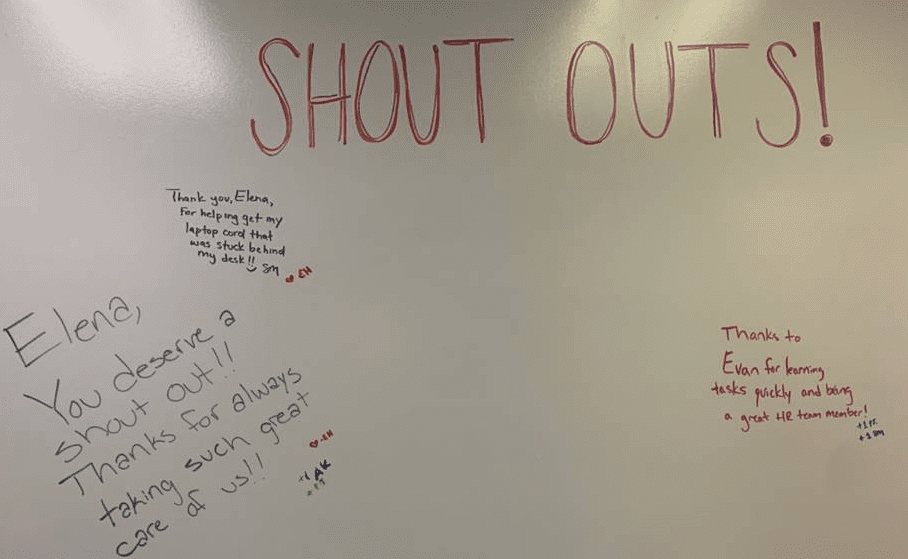 SHOUT OUTS!
Thank you, Elena,
For helping get my
laptop cord that
was stuck behind
my desk!! SM
EH
Elena,
You deserve a
shout out!!
Thanks for always
taking such great
care of us!!
-EH
+1 AK
Thanks to
Evan for learning
tasks quickly and being
a great HR team member!
+1
+1 SM